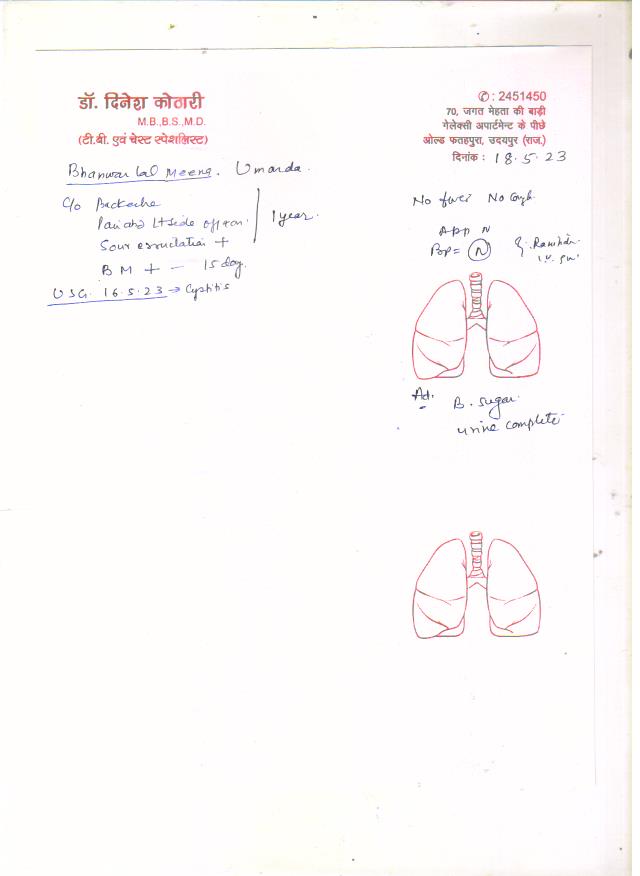 डॉ. दिनेश कोठारी
M.B.,B.S.,M.D.
(टी.बी. एवं चेस्ट स्पेशलिस्ट)
✆ : 2451450
70, जगत मेहता की बाड़ी
गेलेक्सी अपार्टमेन्ट के पीछे
ओल्ड फतहपुरा, उदयपुर (राज.)
दिनांक : 18.5.23
Bhanwar Lal Meena. Umarda.
C/o Backache
Lt side
Sour erructation +
1 year.
B M + - 15 day.
USG. 16.5.23 → Cystitis
No fever No Cough
App N
Bp = N
Ad.
B. Sugar
urine complete